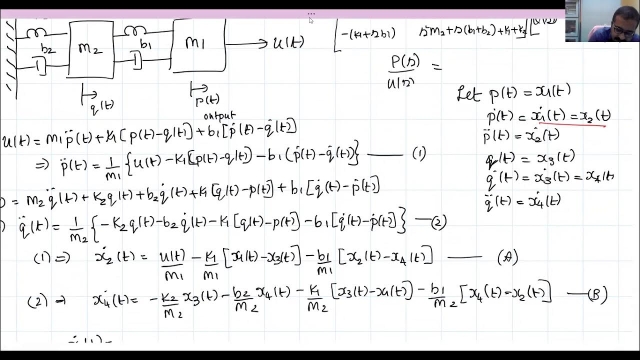 b₂ m₂ b₁ m₁ → u(t)
q(t)
p(t)
output
-(k₁+sb₁) s²m₂+s(b₁+b₂)+k₁+k₂
P(s)/U(s) =
Let p(t) = x₁(t)
ṗ(t) = ẋ₁(t) = x₂(t)
p̈(t) = ẋ₂(t)
q(t) = x₃(t)
q̇(t) = ẋ₃(t) = x₄(t)
q̈(t) = ẋ₄(t)
u(t) = m₁p̈(t) + k₁[p(t)-q(t)] + b₁[ṗ(t)-q̇(t)]
⇒ p̈(t) = 1/m₁ {u(t) - k₁[p(t)-q(t)] - b₁(ṗ(t)-q̇(t)} —— (1)
0 = m₂q̈(t) + k₂q(t) + b₂q̇(t) + k₁[q(t)-p(t)] + b₁[q̇(t)-ṗ(t)]
q̈(t) = 1/m₂ {-k₂q(t) - b₂q̇(t) - k₁[q(t)-p(t)] - b₁[q̇(t)-ṗ(t)} —— (2)
(1) ⇒ ẋ₂(t) = u(t)/m₁ - k₁/m₁ [x₁(t)-x₃(t)] - b₁/m₁ [x₂(t)-x₄(t)] —— (A)
(2) ⇒ ẋ₄(t) = -k₂/m₂ x₃(t) - b₂/m₂ x₄(t) - k₁/m₂ [x₃(t)-x₁(t)] - b₁/m₂ [x₄(t)-x₂(t)] —— (B)